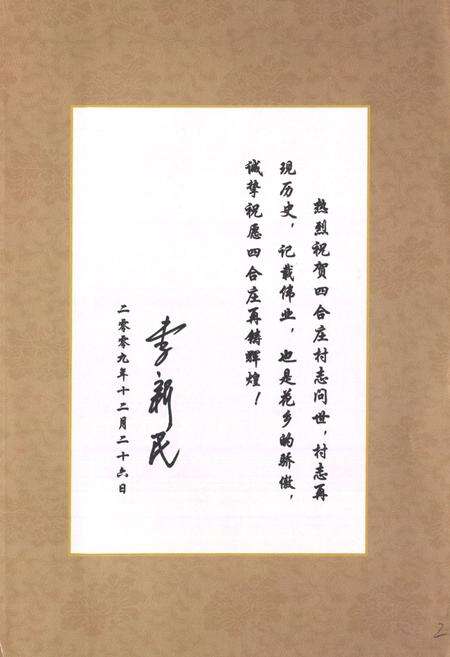 热烈祝贺四合庄村志问世，村志再
现历史，记载伟业，也是花乡的骄傲，
诚挚祝愿四合庄再铸辉煌！
李新民
二零零九年十二月二十六日
2